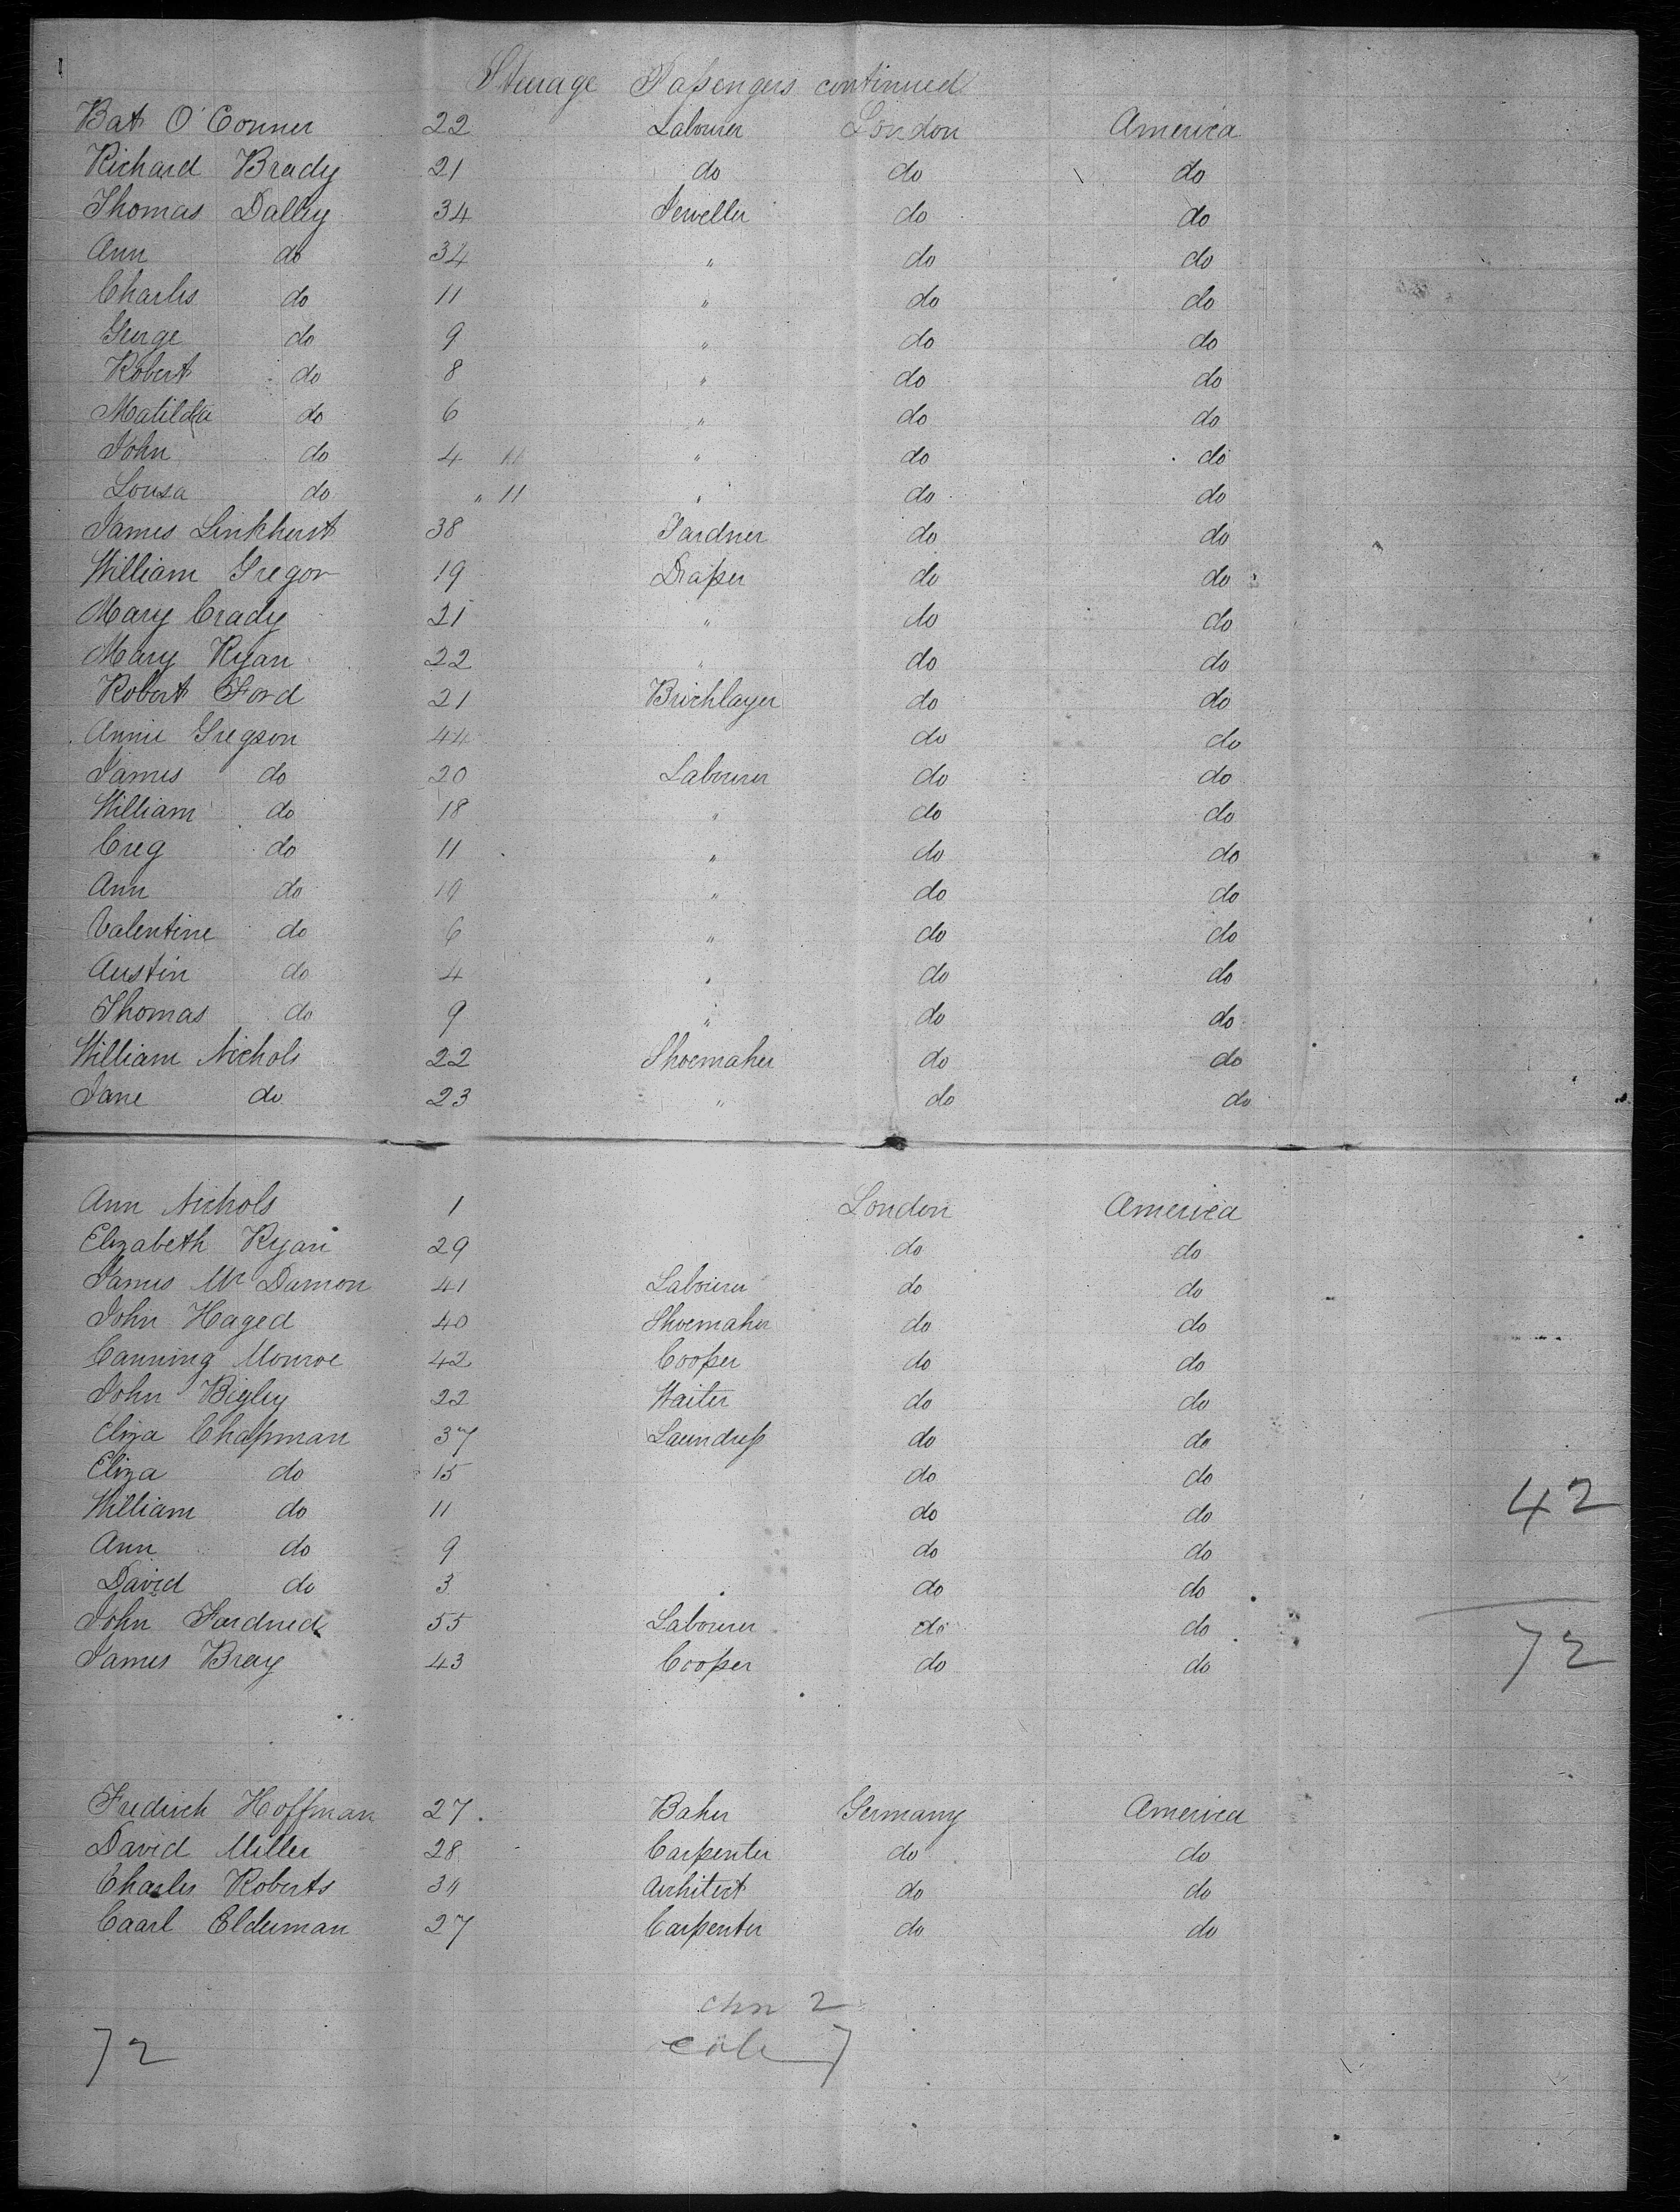 Steerage Passengers continued
Bat O'Conner 22 Labourer London America
Richard Brady 21 do do do
Thomas Dalley 34 Jeweller do do
Ann do 34 " do do
Charles do 11 " do do
George do 9 " do do
Robert do 8 " do do
Matilda do 6 " do do
John do 4 " do do
Lousa do " 11 " do do
James Linkhurst 38 Gardner do do
William Gregor 19 Draper do do
Mary Crady 21 " do do
Mary Ryan 22 " do do
Robert Ford 21 Bricklayer do do
Annie Gregson 44 do do
James do 20 Labourer do do
William do 18 " do do
Creg do 11 " do do
Ann do 19 " do do
Valentine do 6 " do do
Austin do 4 " do do
Thomas do 9 " do do
William Nichols 22 Shoemaker do do
Jane do 23 " do do
Ann Nichols 1 London America
Elizabeth Ryan 29 do do
James Mc Damon 41 Labourer do do
John Haged 40 Shoemaker do do
Canning Monroe 42 Cooper do do
John Bigley 22 Waiter do do
Eliza Chapman 37 Laundress do do
Eliza do 15 do do
William do 11 do do 42
Ann do 9 do do
David do 3 do do
John 55 Labourer do do
James Bray 43 Cooper do do 72
Fredirch Hoffman 27 Baker Germany America
David Miller 28 Carpenter do do
Charles Roberts Architect do do
Caarl Elderman 27 Carpenter do do
chn 2
72 7